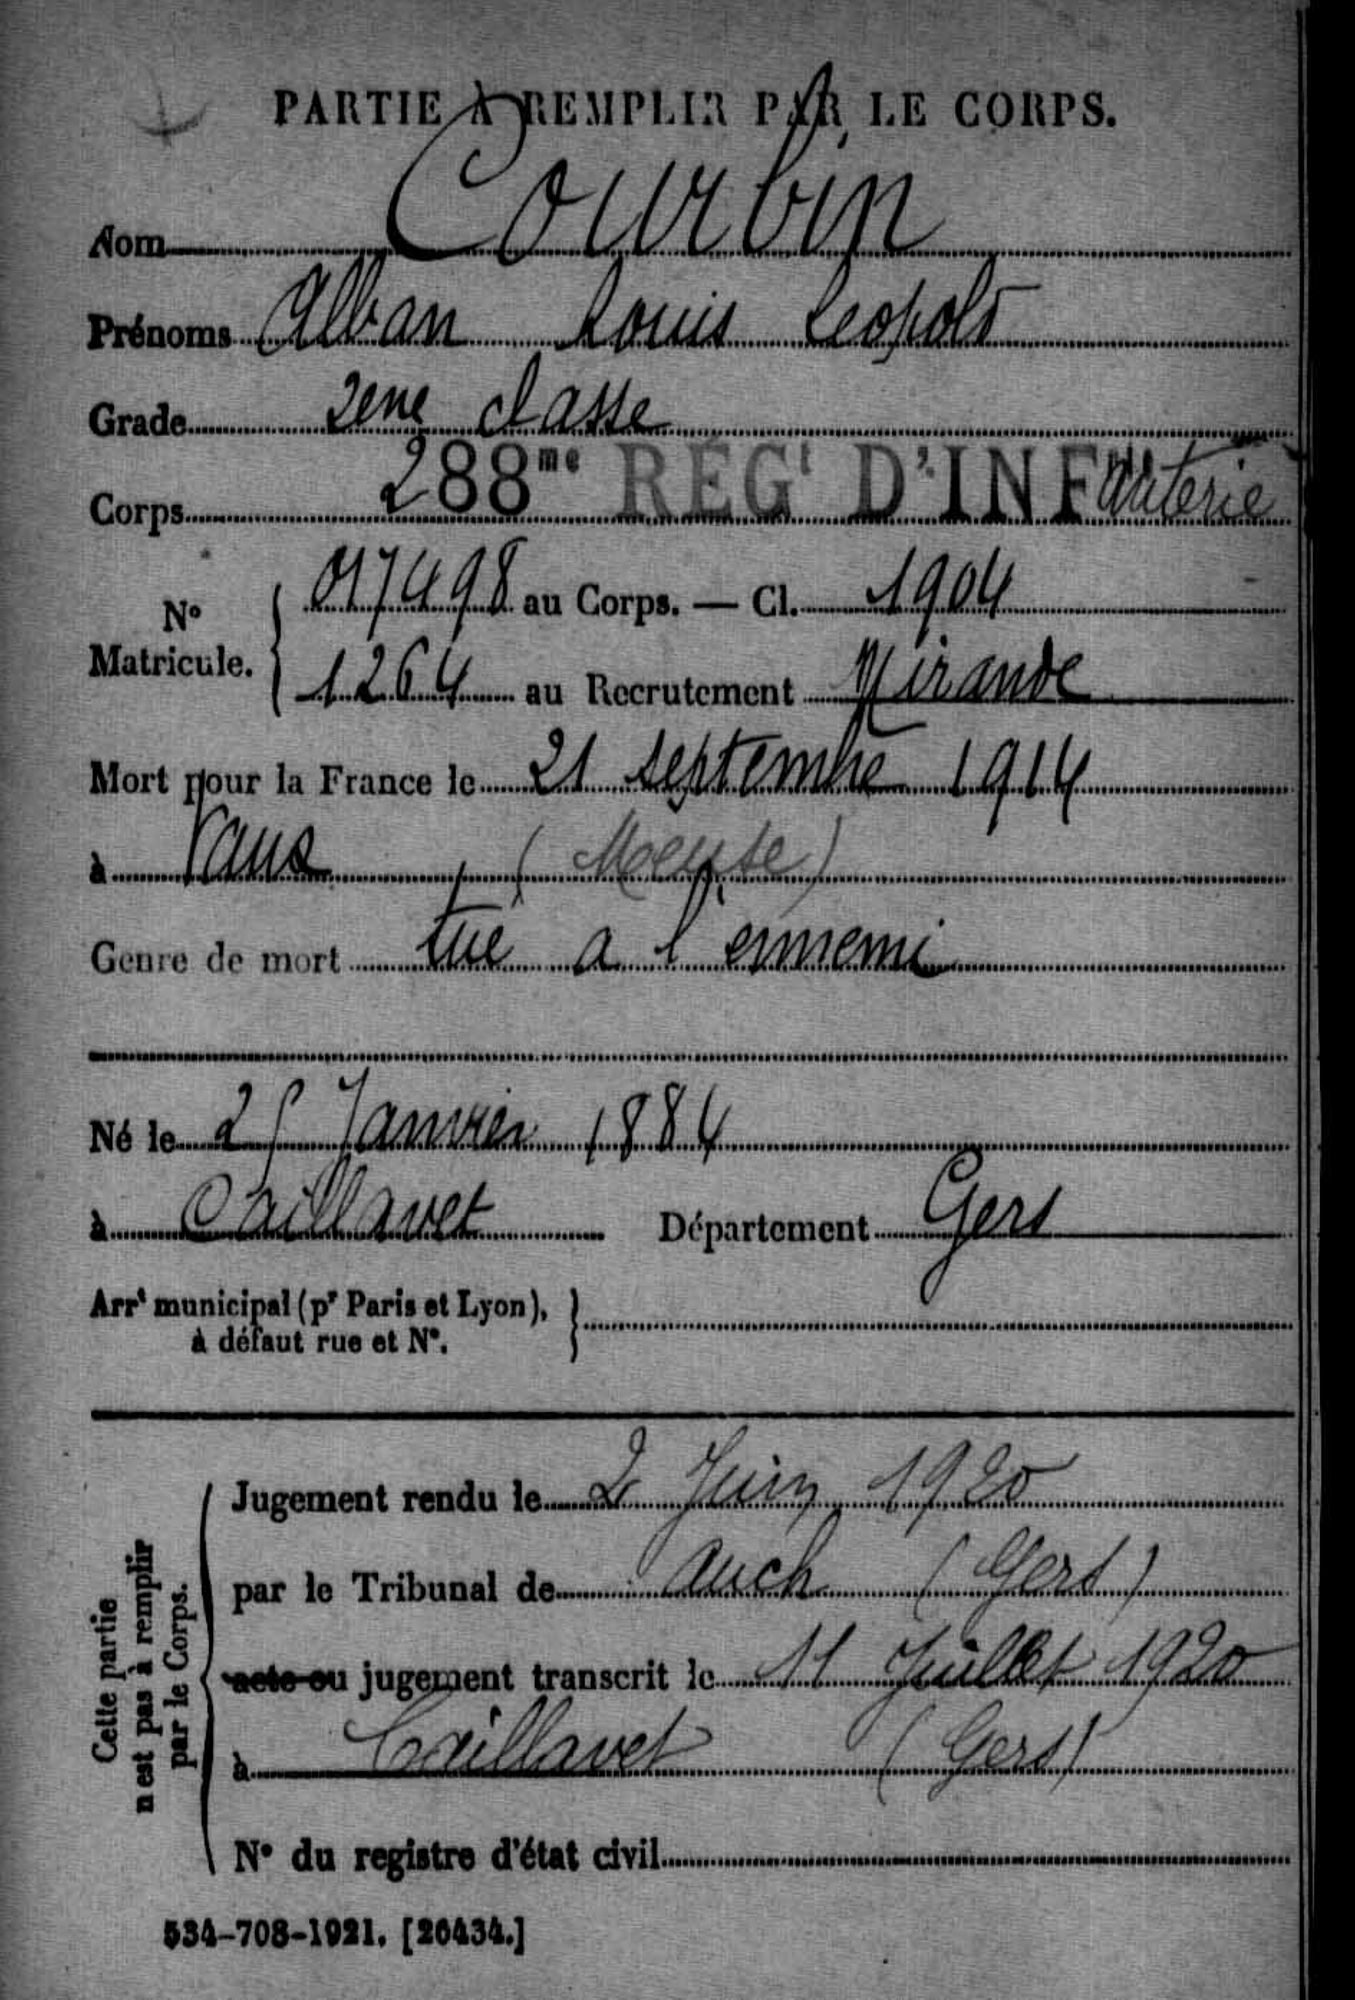 PARTIE À REMPLIR PAR LE CORPS.
Nom Courbin
Prénoms Alban Louis Leopold
Grade 2eme classe
Corps 288me RÉGt D'INFanterie
No Matricule. { 017498 au Corps. — Cl. 1904
1264 au Recrutement Mirande
Mort pour la France le 21 septembre 1914
à Vaux (Meuse)
Genre de mort tué a l'ennemi
Né le 25 Janvier 1884
à Caillavet Département Gers
Arrt municipal (pr Paris et Lyon), }
à défaut rue et No.
Cette partie
n'est pas à remplir
par le Corps.
Jugement rendu le 2 Juin 1920
par le Tribunal de Auch (Gers)
acte ou jugement transcrit le 11 Juillet 1920
à Caillavet (Gers)
No du registre d'état civil
534-708-1921. [26434.]